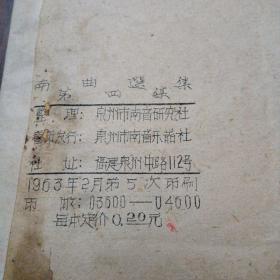 南曲選集
第四集
整理：泉州市南音研究社
翻印发行：泉州市南音乐詺社
社址：福建泉州中路112号
1963年2月第5次印刷
印数：03600—04600
每本定价0.20元